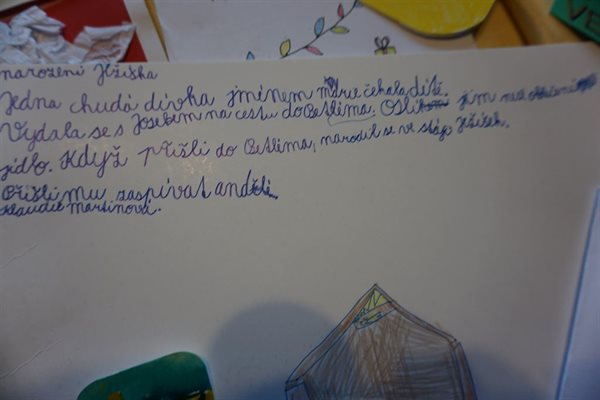 narození Ježíška
Jedna chudá dívka jménem Marie čekala dítě.
Vydala se s Josefem na cestu do Betléma. Oslík jim nesl oblečení
jídlo. Když přišli do Betléma, narodil se ve stáji Ježíšek.
Přišli mu zaspívat andělé.
Klaudie Martinová.
VE